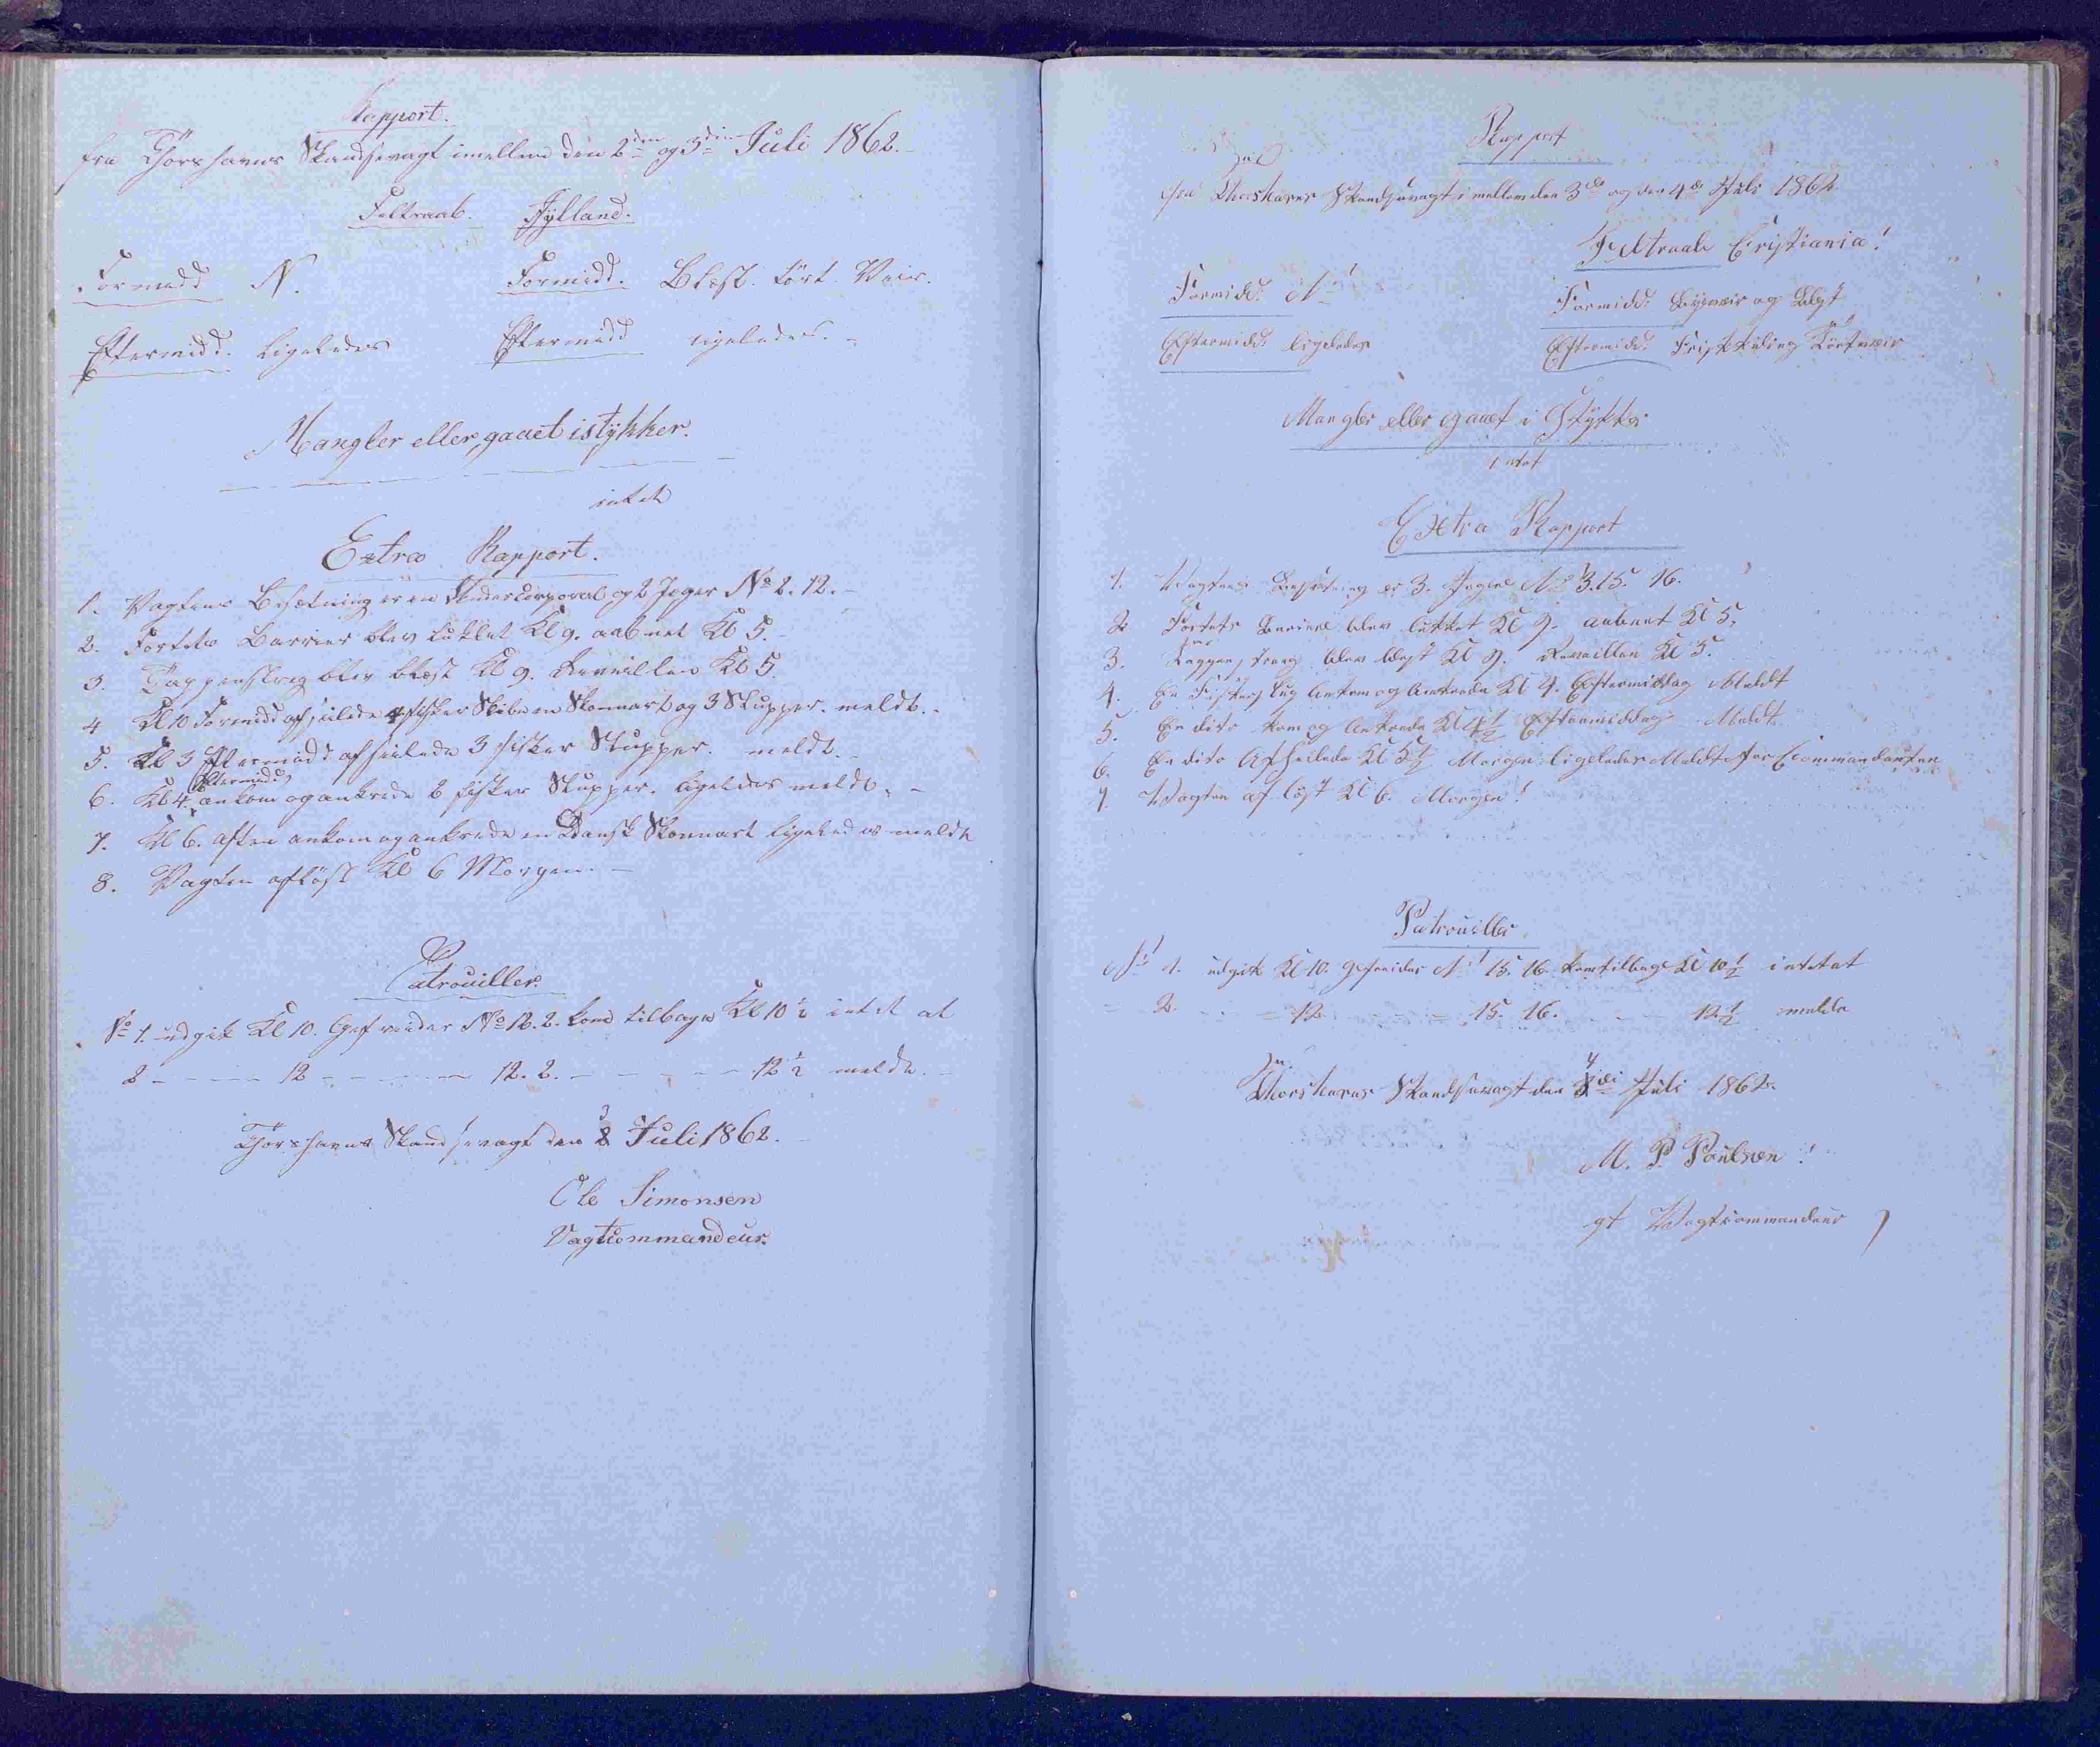 Rapport.
fra Thorshavns Skandsevagt imellem den 2den og 3die Juli 1862.
Feltraab. Jylland.
Formidd N. Formidd. Blæst. tört Veir.
Eftermidd. ligeledes Eftermidd ligeledes.
Mangler eller gaaet istykker.
intet
Extra Rapport.
1. Vagtens Besætning er en Undercorporal og 2 Jæger No 2. 12.
2. Fortets Barrier blev lukket Kl 9. aabnet Kl 5.
3. Tappenstreg blev blæst Kl 9. Reveillen Kl 5.
4 Kl 10 Formidd afseilede 4 fisker Skibe en Skonnart og 3 Slupper. meldt.
5. Kl 3 Eftermidd afseilede 3 fisker Slupper. meldt.
6. Kl 4. Eftermidd ankom og ankrede 2 fisker Slupper. ligeledes meldt.
7. Kl 6. Aften ankom og ankrede en Dansk Skonnart ligeledes meldt
8. Vagten aflöst Kl 6 Morgen.
Patrouiller.
No 1. udgik Kl 10. Gefreider No 12. 2. kom tilbage Kl 10 1/2 intet at
2 - - - 12 - - - - 12. 2. - - - - 12 1/2 melde.
Thorshavns Skandsevagt den 3 Juli 1862.
Ole Simonsen
Vagtcommandeur.
Rapport
fra Thorshavns Skandsevagt i mellem den 3de og den 4de Juli 1862
Feltraab Cristiania!
Formidd: N Formidd: Byeveir og Blæst
Eftermidd: ligeledes Eftermidd: Frisk Kuling Törtveir
Mangler eller gaaet i Stykker
intet
Extra Rapport
1. Vagtens Besætning er 3. Jægere No 3. 15. 16.
2 Fortets Bariere blev lukket Kl 9. aabnet Kl 5.
3. Tappenstreeg blev blæst Kl 9. Reveillen Kl 5.
4. En Fisker Slup Ankom og Ankrede Kl 4. Eftermiddag Meldt
5. En dito kom og Ankrede Kl 4 1/2 Eftermiddag Meldt
6. En dito Afseilede Kl 5 1/2 Morgen ligeledes Meldt for Commandanten
7. Vagten af löst Kl 6. Morgen!
Patrouiller
No 1. udgik Kl 10. Gefreider No 15. 16. kom tilbage Kl 10 1/2 intet at
= 2. - - = 12. - - - = 15. 16. - - 12 1/2 melde
Thorshavns Skandsevagt den 4de Juli 1862.
M. P. Poulsen!
gt Vagtcommandeur